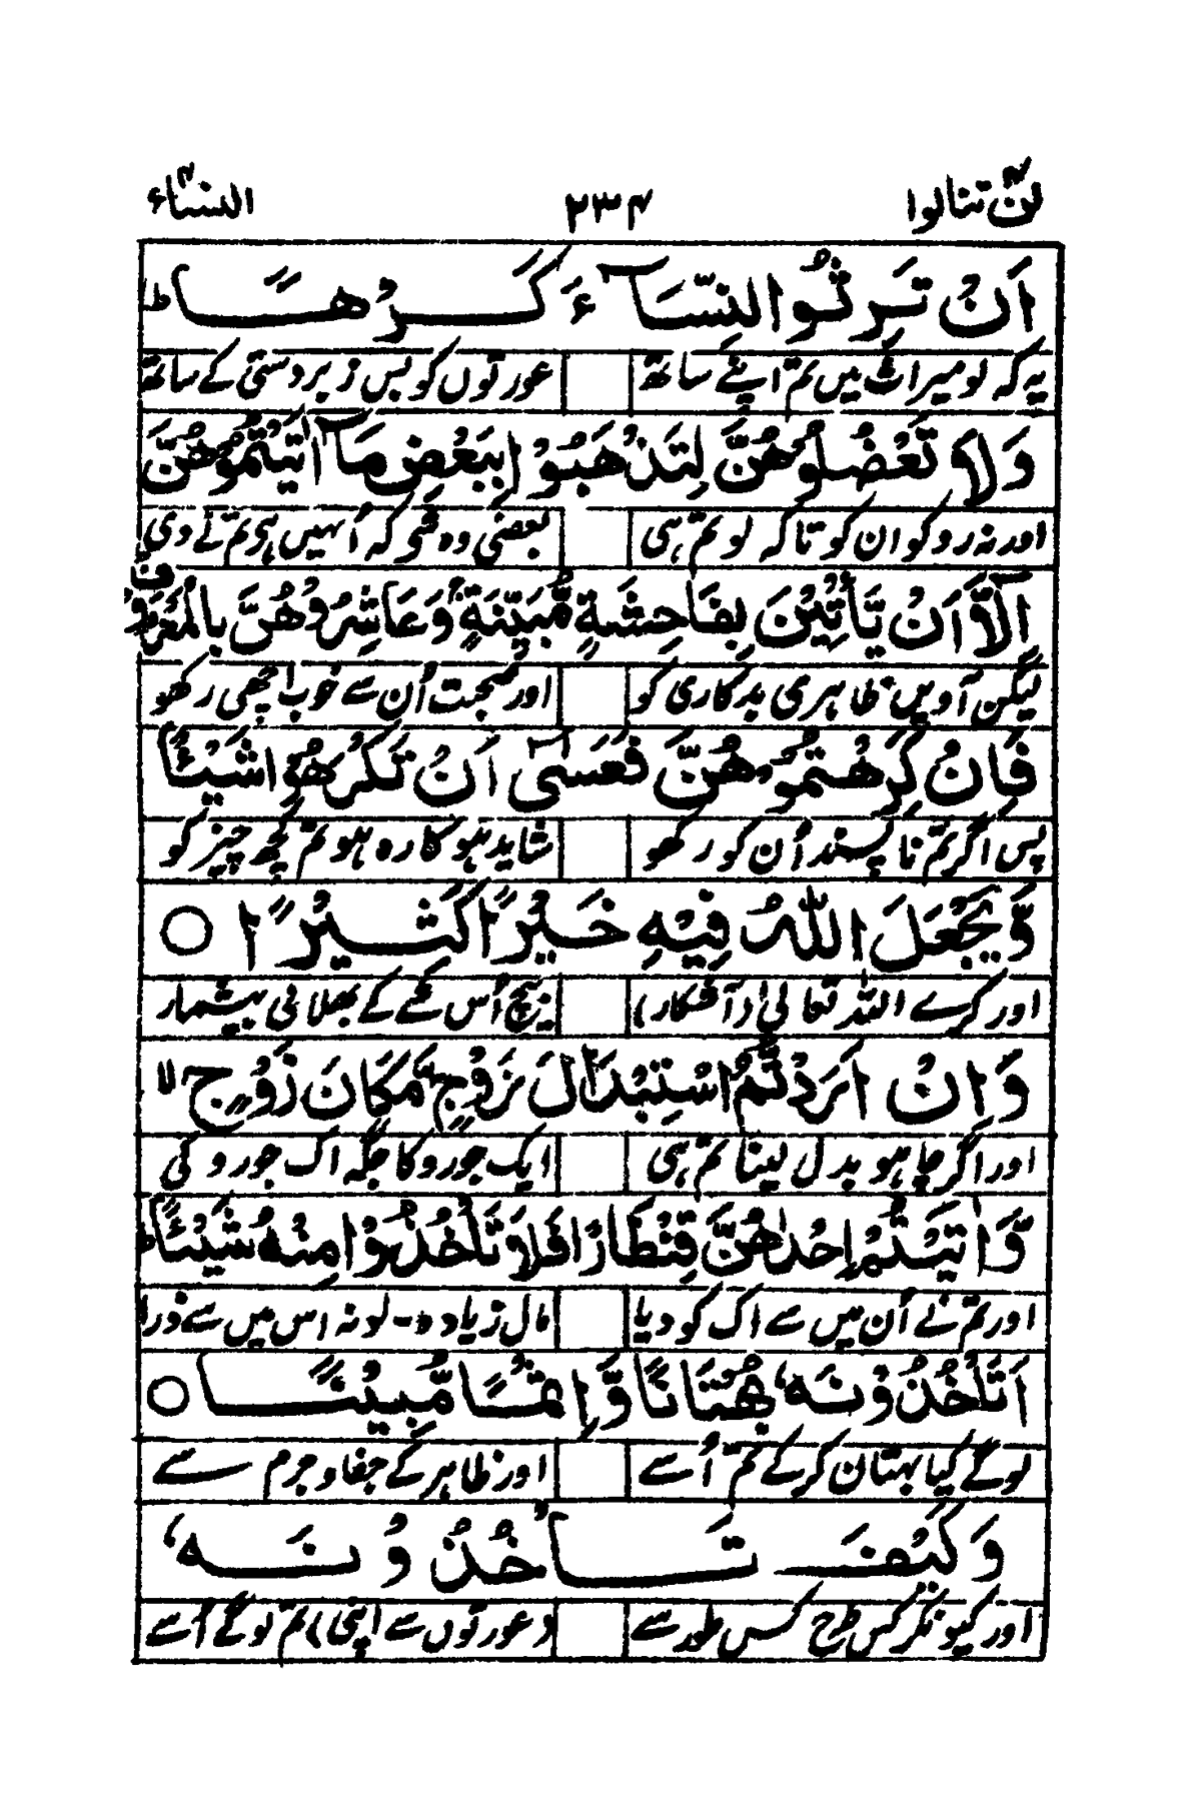 لن تنالوا ۴ ۲۳۴ النسآء ۴
اَنْ تَرِثُوا النِّسَآءَ كَرْهًا ط
یہ کہ لو میراث میں تم اپنے ساتھ عورتوں کو بس زبردستی کے ساتھ
وَلَا تَعْضُلُوْهُنَّ لِتَذْهَبُوْا بِبَعْضِ مَآ اٰتَيْتُمُوْهُنَّ
اور نہ روکو ان کو تاکہ لو تم ہی بعضی وہ شی کہ اُنہیں ہی تم نے دی
اِلَّآ اَنْ يَّأْتِيْنَ بِفَاحِشَةٍ مُّبَيِّنَةٍ ج وَعَاشِرُوْهُنَّ بِالْمَعْرُوْفِ ج
لیکن آویں ظاہری بدکاری کو اور صحبت اُن سے خوب اچھی رکھو
فَاِنْ كَرِهْتُمُوْهُنَّ فَعَسٰٓى اَنْ تَكْرَهُوْا شَيْئًا
پس اگر تم ناپسند اُن کو رکھو شاید ہو کارہ ہو تم کچھ چیز کو
وَّيَجْعَلَ اللّٰهُ فِيْهِ خَيْرًا كَثِيْرًا ○
اور کرے اللہ تعالیٰ (آشکار) بیچ اُس شے کے بھلائی بیشمار
وَاِنْ اَرَدْتُّمُ اسْتِبْدَالَ زَوْجٍ مَّكَانَ زَوْجٍ لا
اور اگر چاہو بدل لینا تم ہی ایک جورو کا جگہ اک جورو کی
وَّاٰتَيْتُمْ اِحْدٰىهُنَّ قِنْطَارًا فَلَا تَأْخُذُوْا مِنْهُ شَيْئًا ط
اور تم نے اُن میں سے اک کو دیا مال زیادہ - لو نہ اس میں سے ذرا
اَتَأْخُذُوْنَهٗ بُهْتَانًا وَّاِثْمًا مُّبِيْنًا ○
لوگے کیا بہتان کرکے تم اُسے اور ظاہر کے جفا و جرم سے
وَكَيْفَ تَأْخُذُوْنَهٗ
اور کیونکر کس طرح کس طور سے (عورتوں سے اپنی) تم لوگے اُسے